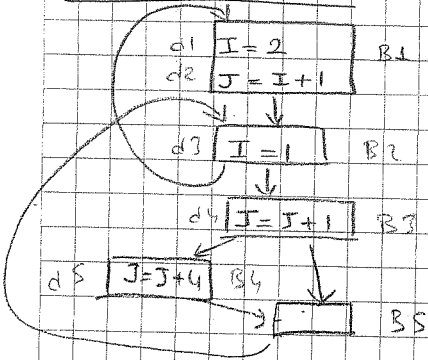 d1 I = 2 B1
d2 J = I + 1
d3 I = 1 B2
d4 J = J + 1 B3
d5 J = J + 4 B4
B5